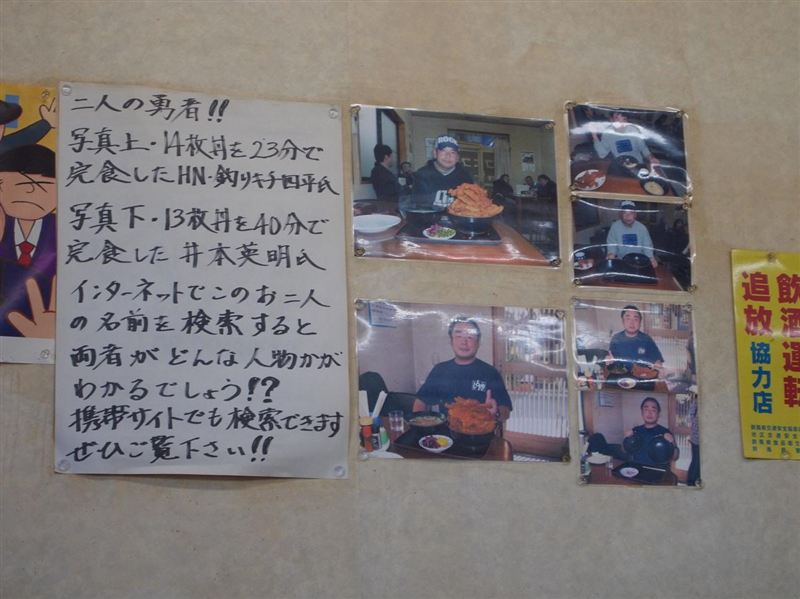 二人の勇者!!
写真上・14枚丼を23分で
完食したHN・釣りキチ四平氏
写真下・13枚丼を40分で
完食した 井本英明氏
インターネットでこのお二人
の名前を検索すると
両者がどんな人物かが
わかるでしょう!?
携帯サイトでも検索できます
ぜひご覧下さい!!
飲酒運転
追放
協力店